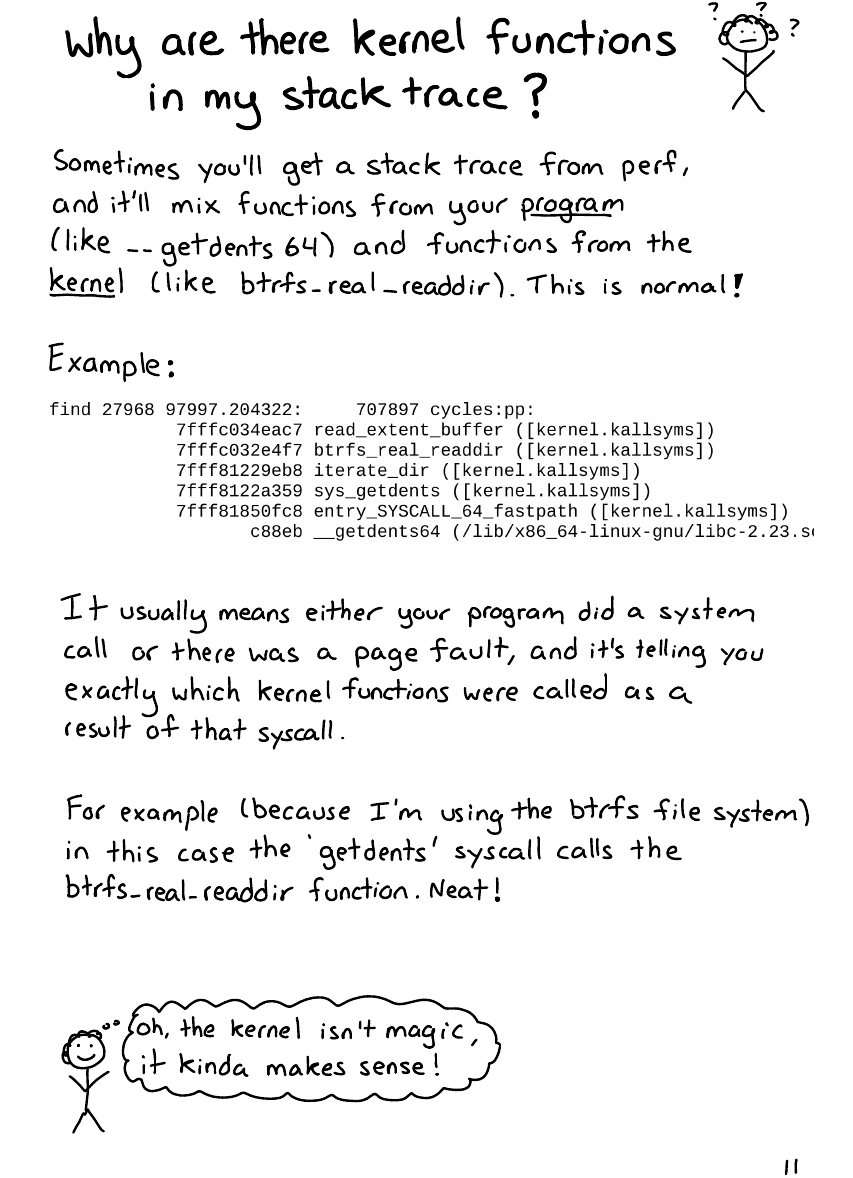 ? ? ?
why are there kernel functions
in my stack trace?
Sometimes you'll get a stack trace from perf,
and it'll mix functions from your program
(like __getdents64) and functions from the
kernel (like btrfs_real_readdir). This is normal!
Example:
find 27968 97997.204322:     707897 cycles:pp:
7fffc034eac7 read_extent_buffer ([kernel.kallsyms])
7fffc032e4f7 btrfs_real_readdir ([kernel.kallsyms])
7fff81229eb8 iterate_dir ([kernel.kallsyms])
7fff8122a359 sys_getdents ([kernel.kallsyms])
7fff81850fc8 entry_SYSCALL_64_fastpath ([kernel.kallsyms])
c88eb __getdents64 (/lib/x86_64-linux-gnu/libc-2.23.s
It usually means either your program did a system
call or there was a page fault, and it's telling you
exactly which kernel functions were called as a
result of that syscall.
For example (because I'm using the btrfs file system)
in this case the 'getdents' syscall calls the
btrfs_real_readdir function. Neat!
oh, the kernel isn't magic,
it kinda makes sense!
11